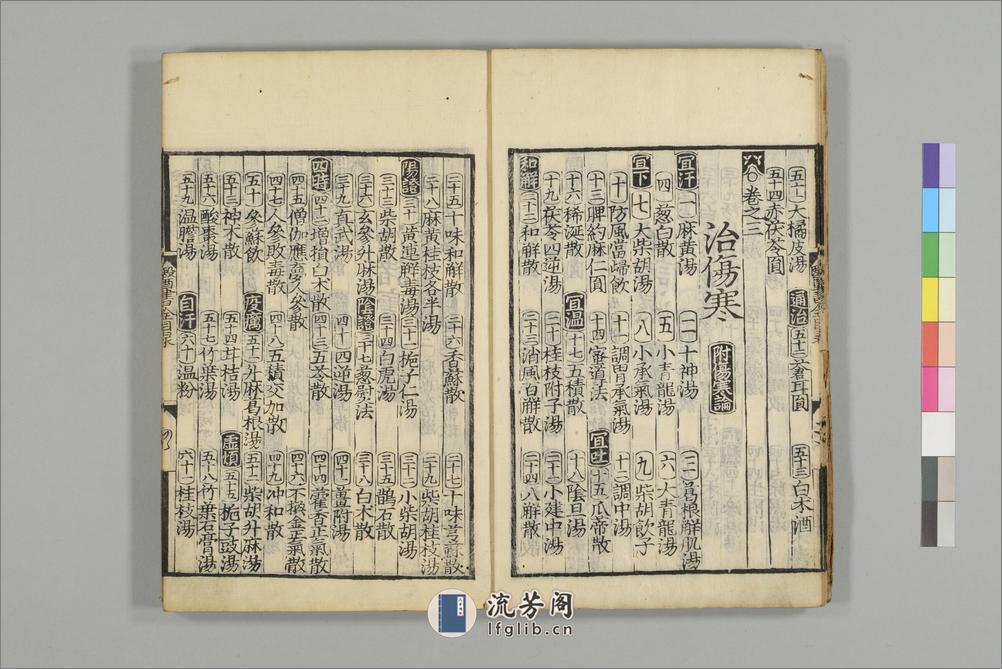 五十一大橘皮湯　通治　五十二蒼耳圓　五十三白术酒
五十四赤茯苓圓
卷之三
治傷寒　附傷寒論
宜汗　一麻黃湯　二十神湯　三葛根解肌湯
四葱白散　五小青龍湯　六大青龍湯
宜下　七大柴胡湯　八小承氣湯　九柴胡飲子
十防風當歸飲　十一調胃承氣湯　十二調中湯
十三脾約麻仁圓　十四審道法　宜吐　十五瓜蒂散
十六稀涎散　宜溫　十七五積散　十八陰旦湯
十九茯苓四逆湯　二十桂枝附子湯　二十一小建中湯
和解　二十二和解散　二十三消風百解散　二十四八解散
二十五十味和解散　二十六香蘇散　二十七十味芎蘇散
二十八麻黃桂枝各半湯　二十九柴胡桂枝湯
陽證　三十黃連解毒湯　三十一梔子仁湯　三十二小柴胡湯
三十三柴胡散　三十四白虎湯　三十五鵲石散
三十六玄參升麻湯　陰證　三十七葱熨法　三十八白术散
三十九真武湯　四十四逆湯　四十一薑附湯
四時　四十二增損白术散　四十三五苓散　四十四藿香正氣散
四十五僧伽應夢人參散　四十六不換金正氣散
四十七人參敗毒散　四十八五積交加散　四十九冲和散
五十參蘇飲　疫癘　五十一升麻葛根湯　五十二柴胡升麻湯
五十三神术散　五十四甘桔湯　虛煩　五十五梔子豉湯
五十六酸棗湯　五十七竹葉湯　五十八竹葉石膏湯
五十九溫膽湯　自汗　六十溫粉　六十一桂枝湯
流芳阁
lfglib.cn